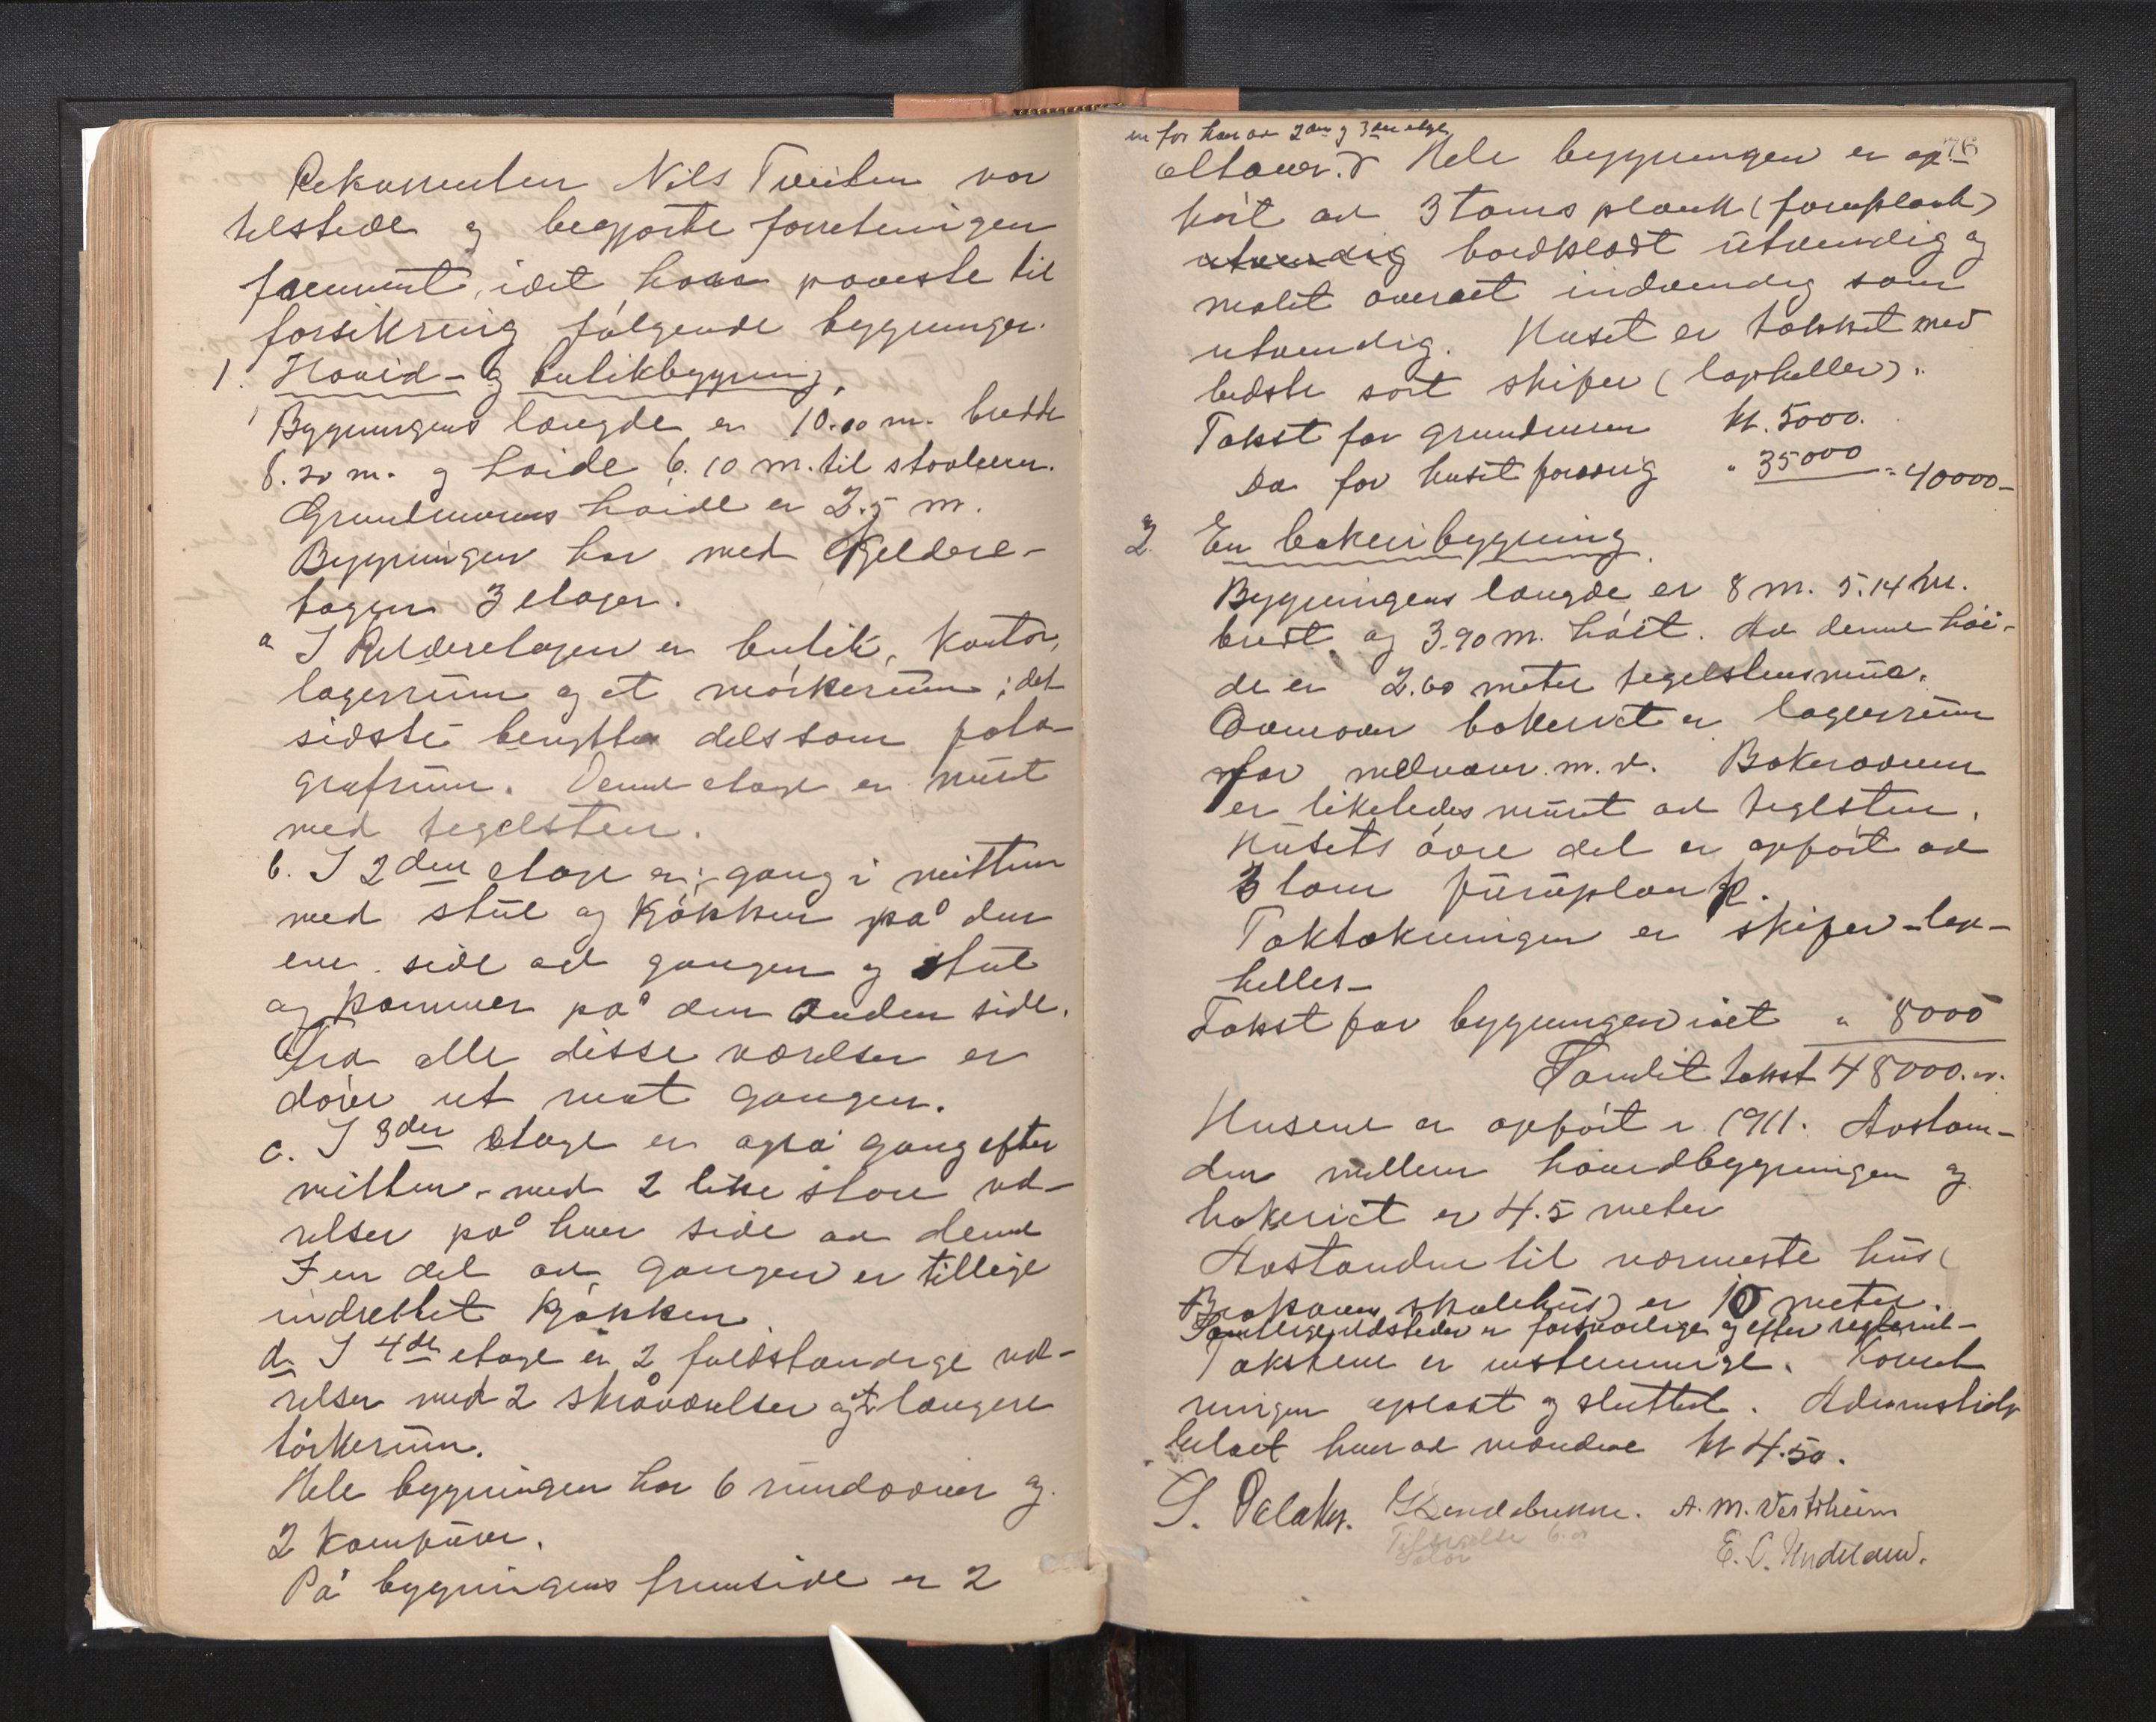 Rekvirenten Nils Tveiten var
tilstede og begjærte forretningen
fremmet, idet han paaviste til
forsikring følgende bygninger.
1. Hovid- og butikbygning.
Bygningens længde er 10.00 m. bredde
8.20 m. og høide 6.10 m. til stavlægen.
Grundmurens høide er 2.5 m.
Bygningen har med Kjeldere-
tagen 3 etager.
a I Kjelderetagen er butik, kontor,
lagerrum og et mørkerum; det
sidste benyttes dels som foto-
grafrum. Denne etage er muret
med tegelsten.
b. I 2den etage er gang i mitten
med stue og kjøkken på den
ene side av gangen og stue
og kammer på den anden side.
Fra alle disse værelser er
dører ut mot gangen.
c. I 3den etage er også gang efter
mitten, med 2 like store væ-
relser på hver side av denne
I en del av gangen er tillige
indrettet kjøkken.
d. I 4de etage er 2 fuldstændige væ-
relser med 2 skråværelser og et længere
tørkerum.
Hele bygningen har 6 rundovner og
2 komfurer.
På bygningens fremside er 2
76
en for hver av 2den og 3die etage
altaner. Hele bygningen er op-
ført av 3 toms plank (furuplank)
utvendig bordklædt utvendig og
malet overalt indvendig som
utvendig. Huset er tækket med
bedste sort skifer (lapheller).
Takst for grundmuren kr. 5000.
Do for huset forøvrig " 35000 = 40000-
2. En bakeribygning.
Bygningens længde er 8 m. 5.14 m.
bredt og 3.90 m. høit. Av denne høi-
de er 2.60 meter tegelstensmur.
Ovenover bakeriet er lagerrum
for melvarer m. v. Bakerovnen
er likeledes muret av teglsten.
Husets øvre del er opført av
3 tom furuplank.
Taktækningen er skifer - lap-
heller -
Takst for bygningen i et " 8000
Samlet takst 48000. kr.
Husene er opført i 1911. Avstan-
den mellem hovedbygningen og
bakeriet er 4.5 meter
Avstanden til nærmeste hus (
skolehus) er 10 meter.
Samtlige ildsteder er forsvarlige og efter reglement-
Takstene er enstemmige. Forret
ningen oplæst og sluttet.
hver av mændene kr 4.50.
A. M. Vestrheim